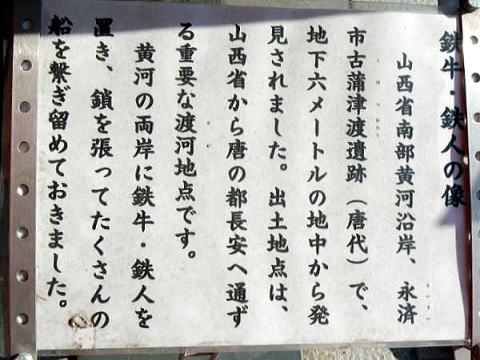 鉄牛・鉄人の像
山西省南部黄河沿岸、永済
市古蒲津渡遺跡（唐代）で、
地下六メートルの地中から発
見されました。出土地点は、
山西省から唐の都長安へ通ず
る重要な渡河地点です。
黄河の両岸に鉄牛・鉄人を
置き、鎖を張ってたくさんの
船を繋ぎ留めておきました。